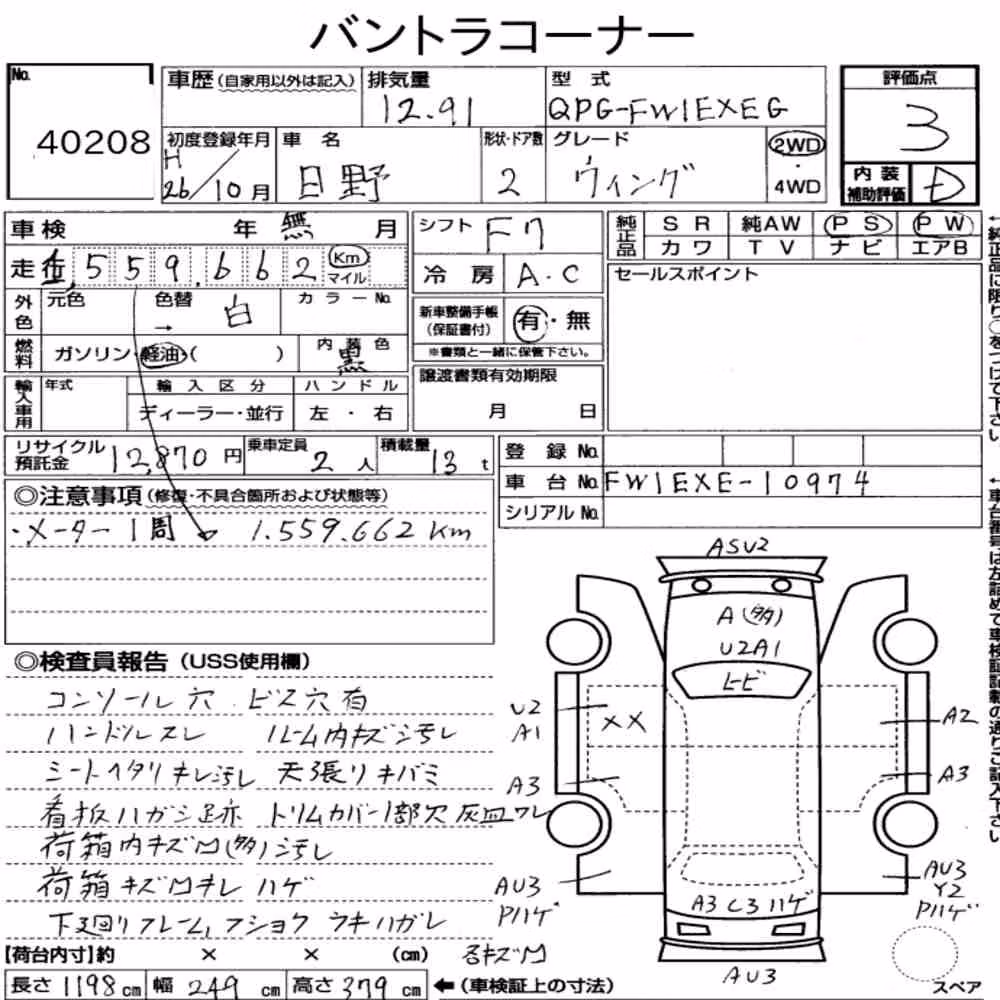 バントラコーナー
No.
40208
車歴 (自家用以外は記入)
排気量
12.91
型式
QPG-FW1EXEG
評価点
3
初度登録年月
H
26/10月
車名
日野
形状・ドア数
2
グレード
ウィング
2WD
・
4WD
内装
補助評価
D
車検 年 無 月
走行 1,559,662 Km マイル
外色
元色
色替
→ 白
カラーNo.
燃料
ガソリン・軽油・( )
内装色
黒
輸入車用
年式
輸入区分
ディーラー・並行
ハンドル
左・右
シフト F7
冷房 A.C
新車整備手帳
(保証書付)
有・無
※書類と一緒に保管下さい。
譲渡書類有効期限
月 日
純正品
SR 純AW PS PW
カワ TV ナビ エアB
セールスポイント
←純正品に限り○をつけて下さい
リサイクル預託金 12,870 円
乗車定員 2 人
積載量 13 t
登録No.
車台No. FW1EXE-10974
シリアルNo.
←車台番号は左詰めで車検証記載の通りご記入下さい
◎注意事項 (修復・不具合箇所および状態等)
・メーター1周 1.559.662 km
◎検査員報告 (USS使用欄)
コンソール穴 ビス穴有
ハンドルスレ ルーム内キズ汚レ
シートヘタリキレ汚レ 天張りキバミ
看板ハガシ跡 トリムカバー1部欠 灰皿ワレ
荷箱内キズ凹(多)汚レ
荷箱キズ凹キレ ハゲ
下廻りフレーム,フショク ラキハガレ
ASU2
A(多)
U2A1
ヒビ
U2
A1
××
A2
A3
A3
AU3
Pハゲ
AU3
Y2
Pハゲ
A3 C3 ハゲ
各キズ凹
AU3
スペア
【荷台内寸】約 × × (cm)
長さ 1198 cm 幅 249 cm 高さ 379 cm ←(車検証上の寸法)